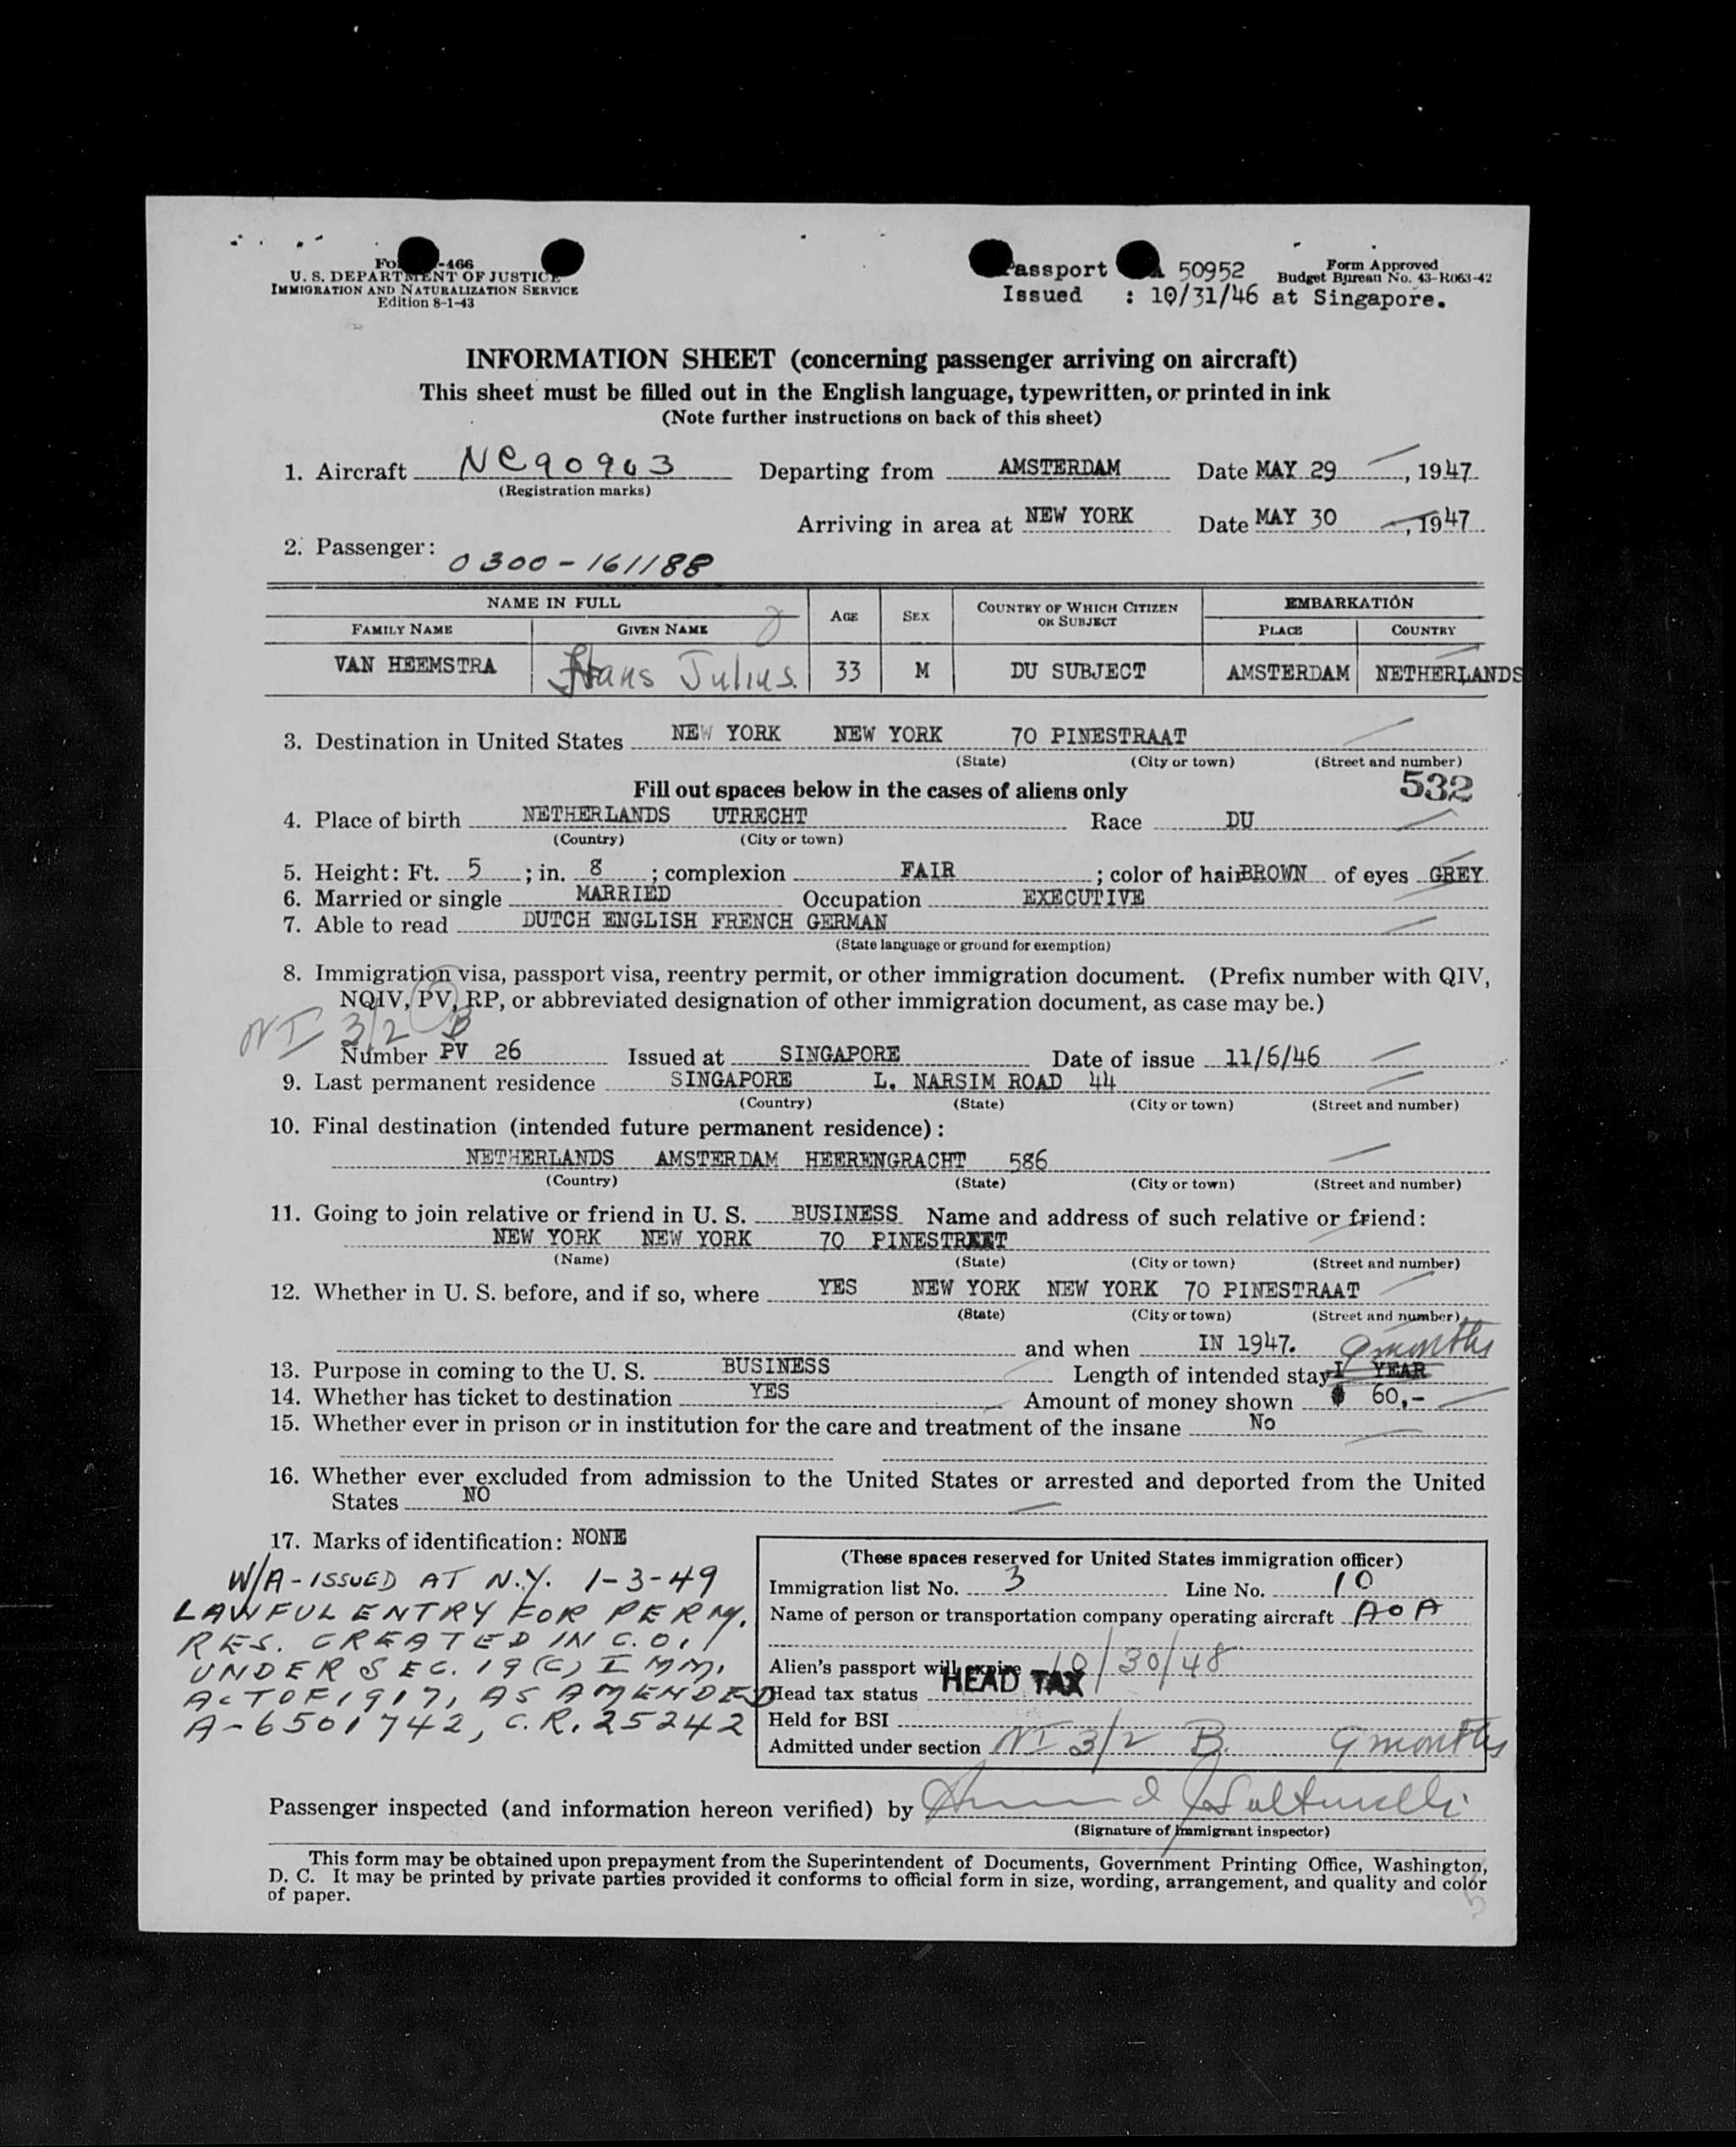 Fo -466
U. S. DEPARTMENT OF JUSTICE
IMMIGRATION AND NATURALIZATION SERVICE
Edition 8-1-43
Passport A 50952
Issued : 10/31/46 at Singapore.
Form Approved
Budget Bureau No. 43-R063-42
INFORMATION SHEET (concerning passenger arriving on aircraft)
This sheet must be filled out in the English language, typewritten, or printed in ink
(Note further instructions on back of this sheet)
1. Aircraft NC90903 Departing from AMSTERDAM Date MAY 29, 1947
(Registration marks)
Arriving in area at NEW YORK Date MAY 30, 1947
2. Passenger: 0300-161188
NAME IN FULL AGE SEX COUNTRY OF WHICH CITIZEN OR SUBJECT EMBARKATION
FAMILY NAME GIVEN NAME PLACE COUNTRY
VAN HEEMSTRA Hans Julius. 33 M DU SUBJECT AMSTERDAM NETHERLANDS
3. Destination in United States NEW YORK NEW YORK 70 PINESTRAAT
(State) (City or town) (Street and number)
Fill out spaces below in the cases of aliens only 532
4. Place of birth NETHERLANDS UTRECHT Race DU
(Country) (City or town)
5. Height: Ft. 5; in. 8; complexion FAIR; color of hair BROWN of eyes GREY
6. Married or single MARRIED Occupation EXECUTIVE
7. Able to read DUTCH ENGLISH FRENCH GERMAN
(State language or ground for exemption)
8. Immigration visa, passport visa, reentry permit, or other immigration document. (Prefix number with QIV,
NQIV, PV, RP, or abbreviated designation of other immigration document, as case may be.)
NI 3/2 B
Number PV 26 Issued at SINGAPORE Date of issue 11/6/46
9. Last permanent residence SINGAPORE L. NARSIM ROAD 44
(Country) (State) (City or town) (Street and number)
10. Final destination (intended future permanent residence):
NETHERLANDS AMSTERDAM HEERENGRACHT 586
(Country) (State) (City or town) (Street and number)
11. Going to join relative or friend in U. S. BUSINESS Name and address of such relative or friend:
NEW YORK NEW YORK 70 PINESTREET
(Name) (State) (City or town) (Street and number)
12. Whether in U. S. before, and if so, where YES NEW YORK NEW YORK 70 PINESTRAAT
(State) (City or town) (Street and number)
and when IN 1947. 9 months
13. Purpose in coming to the U. S. BUSINESS Length of intended stay I YEAR
14. Whether has ticket to destination YES Amount of money shown $ 60,-
15. Whether ever in prison or in institution for the care and treatment of the insane No
16. Whether ever excluded from admission to the United States or arrested and deported from the United
States NO
17. Marks of identification: NONE
W/A-ISSUED AT N.Y. 1-3-49
LAWFUL ENTRY FOR PERM.
RES. CREATED IN C.O.
UNDER SEC. 19(C) IMM.
ACT OF 1917, AS AMENDED
A-6501742, C.R. 25242
(These spaces reserved for United States immigration officer)
Immigration list No. 3 Line No. 10
Name of person or transportation company operating aircraft AOA
Alien's passport will expire 10/30/48
Head tax status HEAD TAX
Held for BSI
Admitted under section NI 3/2 B. 9 months
Passenger inspected (and information hereon verified) by
(Signature of immigrant inspector)
This form may be obtained upon prepayment from the Superintendent of Documents, Government Printing Office, Washington,
D. C. It may be printed by private parties provided it conforms to official form in size, wording, arrangement, and quality and color
of paper.